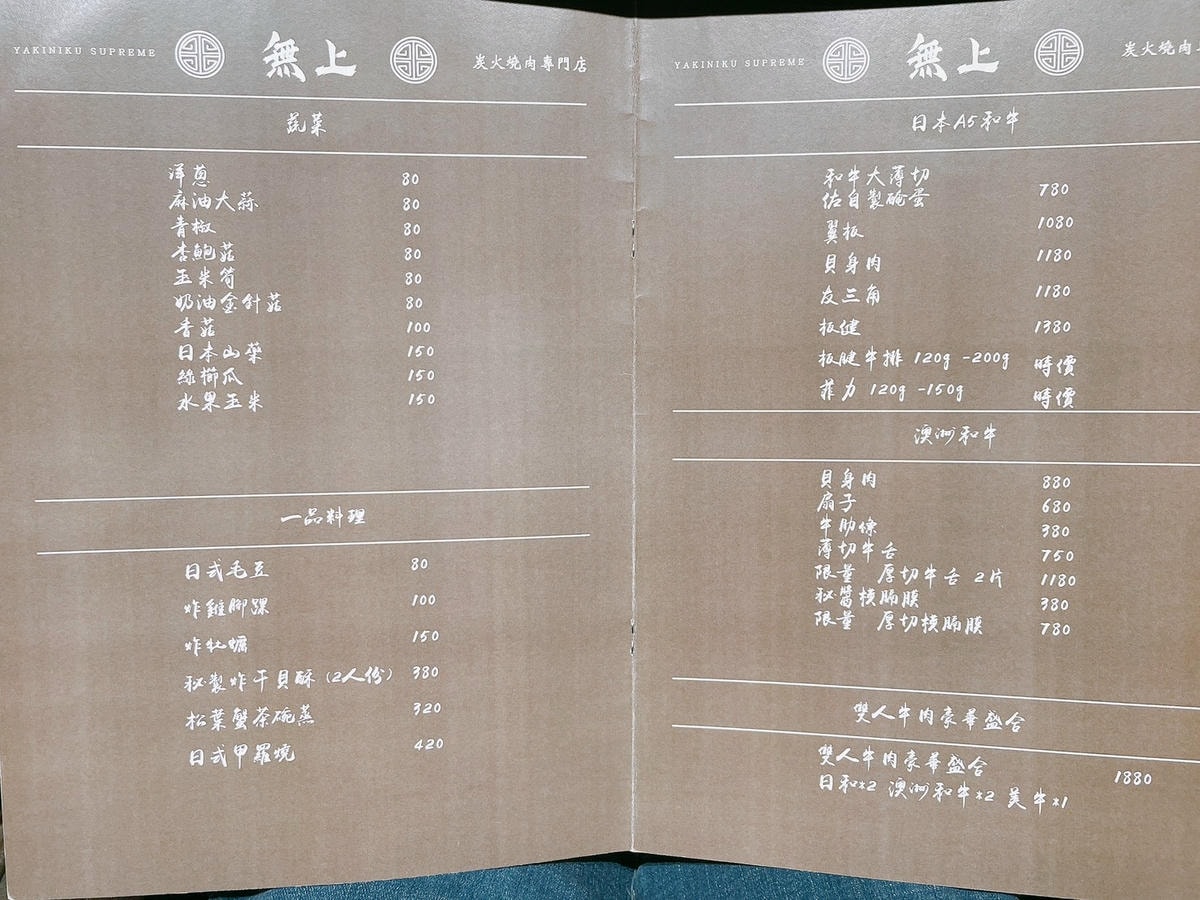 YAKINIKU SUPREME 無上 炭火燒肉專門店
蔬菜
洋蔥 80
麻油大蒜 80
青椒 80
杏鮑菇 80
玉米筍 80
奶油金針菇 80
香菇 100
日本山藥 150
綠櫛瓜 150
水果玉米 150
一品料理
日式毛豆 80
炸雞腳踝 100
炸牡蠣 150
秘製炸干貝酥(2人份) 380
松葉蟹茶碗蒸 320
日式甲羅燒 420
YAKINIKU SUPREME 無上 炭火燒肉
日本A5和牛
和牛大薄切
佐自製醃蛋 780
翼板 1080
貝身肉 1180
友三角 1180
板健 1380
板腱牛排 120g -200g 時價
菲力 120g -150g 時價
澳洲和牛
貝身肉 880
扇子 680
牛肋條 380
薄切牛舌 750
限量 厚切牛舌 2片 1180
秘醬橫膈膜 380
限量 厚切橫膈膜 780
雙人牛肉豪華盛合
雙人牛肉豪華盛合 1880
日和*2 澳洲和牛*2 美牛*1